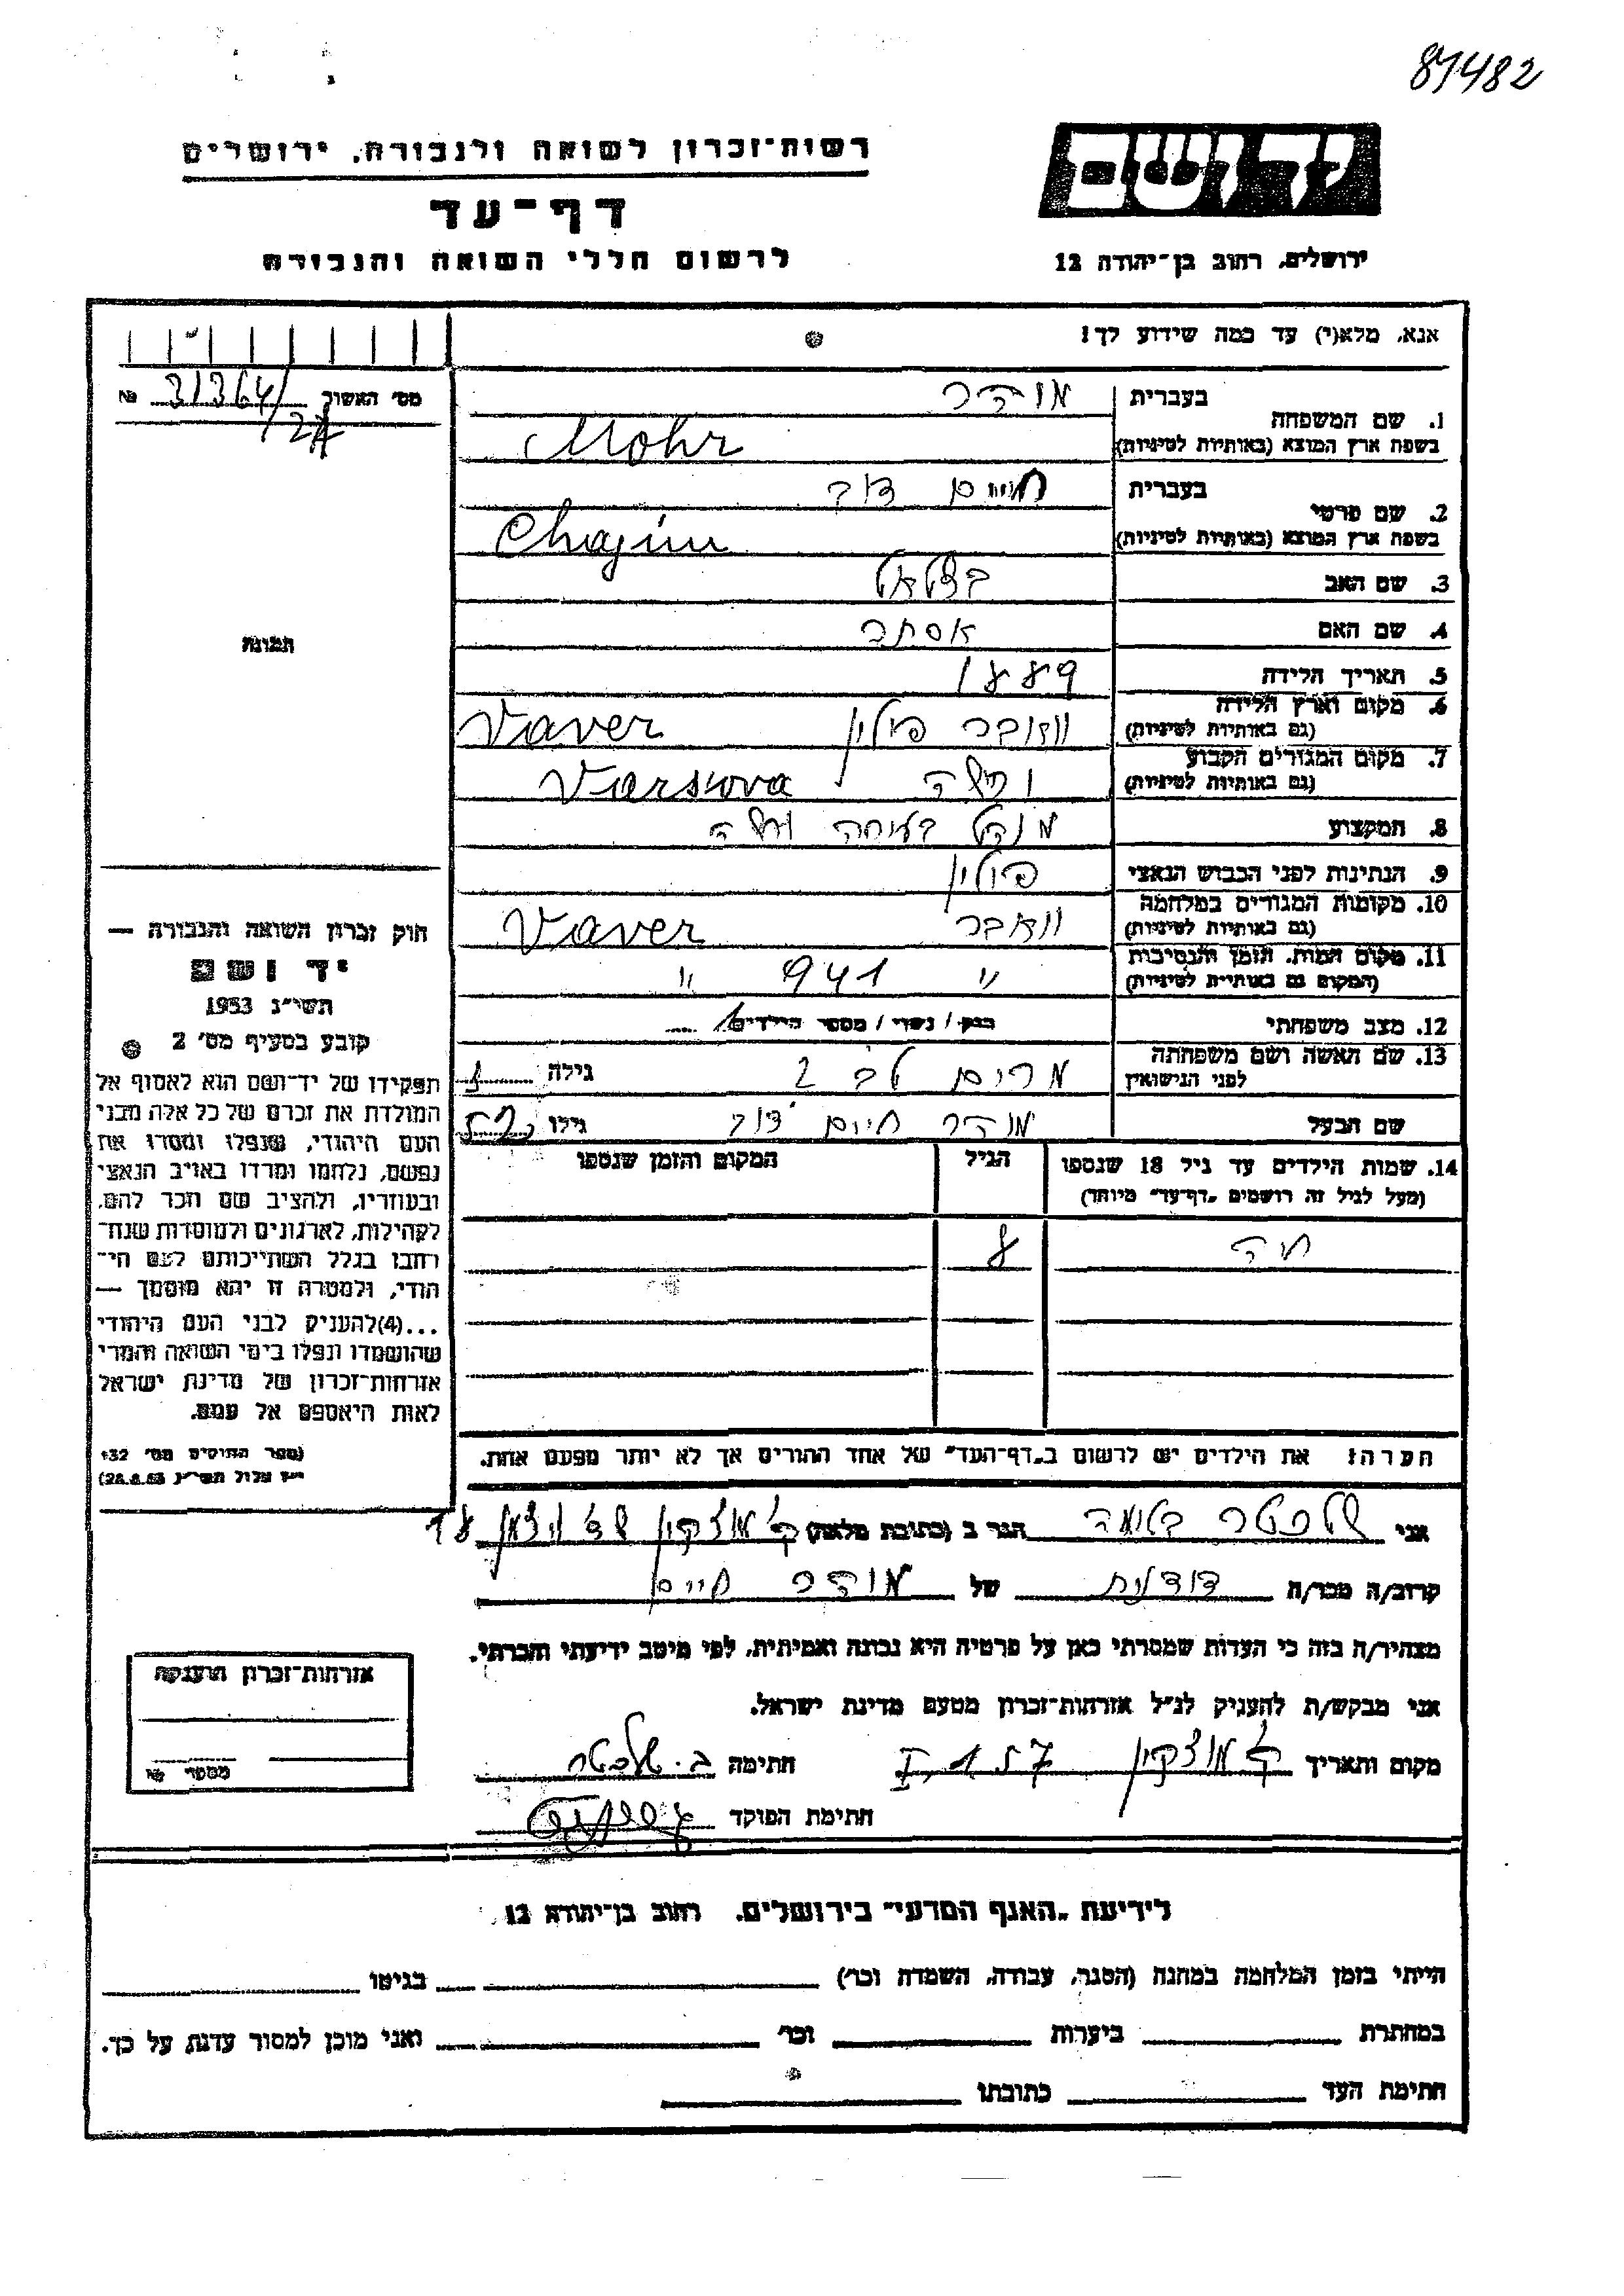 87482
יד ושם
רשות־זכרון לשואה ולגבורה, ירושלים
דף־עד
לרשום חללי השואה והגבורה
ירושלים, רחוב בן־יהודה 12
אנא, מלא(י) עד כמה שידוע לך!
מס' האשור № 31364/
בעברית מוהר
1. שם המשפחה
בשפת ארץ המוצא (באותיות לטיניות) Mohr
בעברית חיים דוב
2. שם פרטי
בשפת ארץ המוצא (באותיות לטיניות) Chajim
3. שם האב בצלאל
4. שם האם אסתר
5. תאריך הלידה 1889
6. מקום וארץ הלידה
(גם באותיות לטיניות) פולין Vaver
7. מקום המגורים הקבוע
(גם באותיות לטיניות) ורשה Varsova
8. המקצוע
9. הנתינות לפני הכבוש הנאצי פולין
10. מקומות המגורים במלחמה
(גם באותיות לטיניות) וואבר Vaver
11. מקום המות, הזמן והנסיבות
(המקום גם באותיות לטיניות) " 941 "
12. מצב משפחתי רוק / נשוי / מספר הילדים 1
13. שם האשה ושם משפחתה
לפני הנישואין מרים גילה
שם הבעל מוהר חיים דוב גילו
14. שמות הילדים עד גיל 18 שנספו
(מעל לגיל זה רושמים „דף־עד" מיוחד)
הגיל
המקום והזמן שנספו
חיה 8
הערה: את הילדים יש לרשום ב„דף־העד" של אחד ההורים אך לא יותר מפעם אחת.
תמונה
חוק זכרון השואה והגבורה —
יד ושם
תשי"ג 1953
קובע בסעיף מס' 2
תפקידו של יד־ושם הוא לאסוף אל
המולדת את זכרם של כל אלה מבני
העם היהודי, שנפלו ומסרו את
נפשם, נלחמו ומרדו באויב הנאצי
ובעוזריו, ולהציב שם וזכר להם,
לקהילות, לארגונים ולמוסדות שנח־
רבו בגלל השתייכותם לעם הי־
הודי, ולמטרה זו יהא מוסמך —
...(4)להעניק לבני העם היהודי
שהושמדו ונפלו בימי השואה והמרי
אזרחות־זכרון של מדינת ישראל
לאות היאספם אל עמם.
(ספר החוקים מס' 132
י"ז אלול תשי"ג 28.8.53)
אני הגר ב (כתובת מלאה) ק. מוצקין
קרוב/ה מכר/ה דודנית של מוהר חיים
מצהיר/ה בזה כי העדות שמסרתי כאן על פרטיה היא נכונה ואמיתית, לפי מיטב ידיעתי והכרתי.
אני מבקש/ת להעניק לנ"ל אזרחות־זכרון מטעם מדינת ישראל.
מקום ותאריך ק. מוצקין חתימה
חתימת הפוקד
אזרחות־זכרון הוענקה
מספר №
לידיעת „האגף המדעי" בירושלים, רחוב בן־יהודא 12
הייתי בזמן המלחמה במחנה (הסגר, עבודה, השמדה וכו') בגיטו
במחתרת ביערות וכו' ואני מוכן למסור עדות על כך.
חתימת העד כתובתו